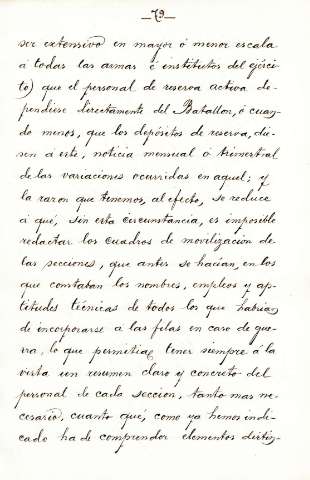 -79-
ser extensivo en mayor ó menor escala
á todas las armas é institutos del ejérci-
to) que el personal de reserva activa de-
pendiese directamente del Batallon, ó cuan-
do menos, que los depósitos de reserva, die-
sen á este, noticia mensual ó trimestral
de las variaciones ocurridas en aquel; y
la razon que tenemos, al efecto, se reduce
á que, sin esta circunstancia, es imposible
redactar los cuadros de movilización de
las secciones, que antes se hacían, en los
que constaban los nombres, empleos y ap-
titudes técnicas de todos los que habrian
de incorporarse á las filas en caso de gue-
rra, lo que permitia tener siempre á la
vista un resumen claro y concreto del
personal de cada seccion, tanto mas ne-
cesario, cuanto que, como ya hemos indi-
cado ha de comprender elementos distin-